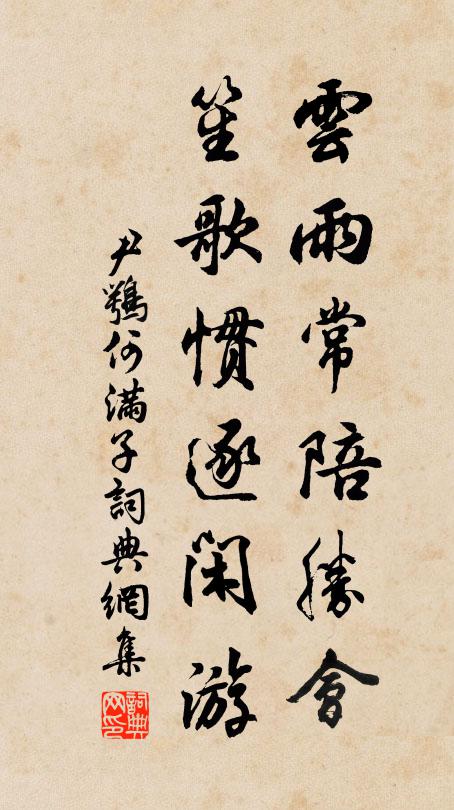 雲雨常陪勝會
笙歌慣逐閑游
尹鶚何滿子詞典網集
詞典网印